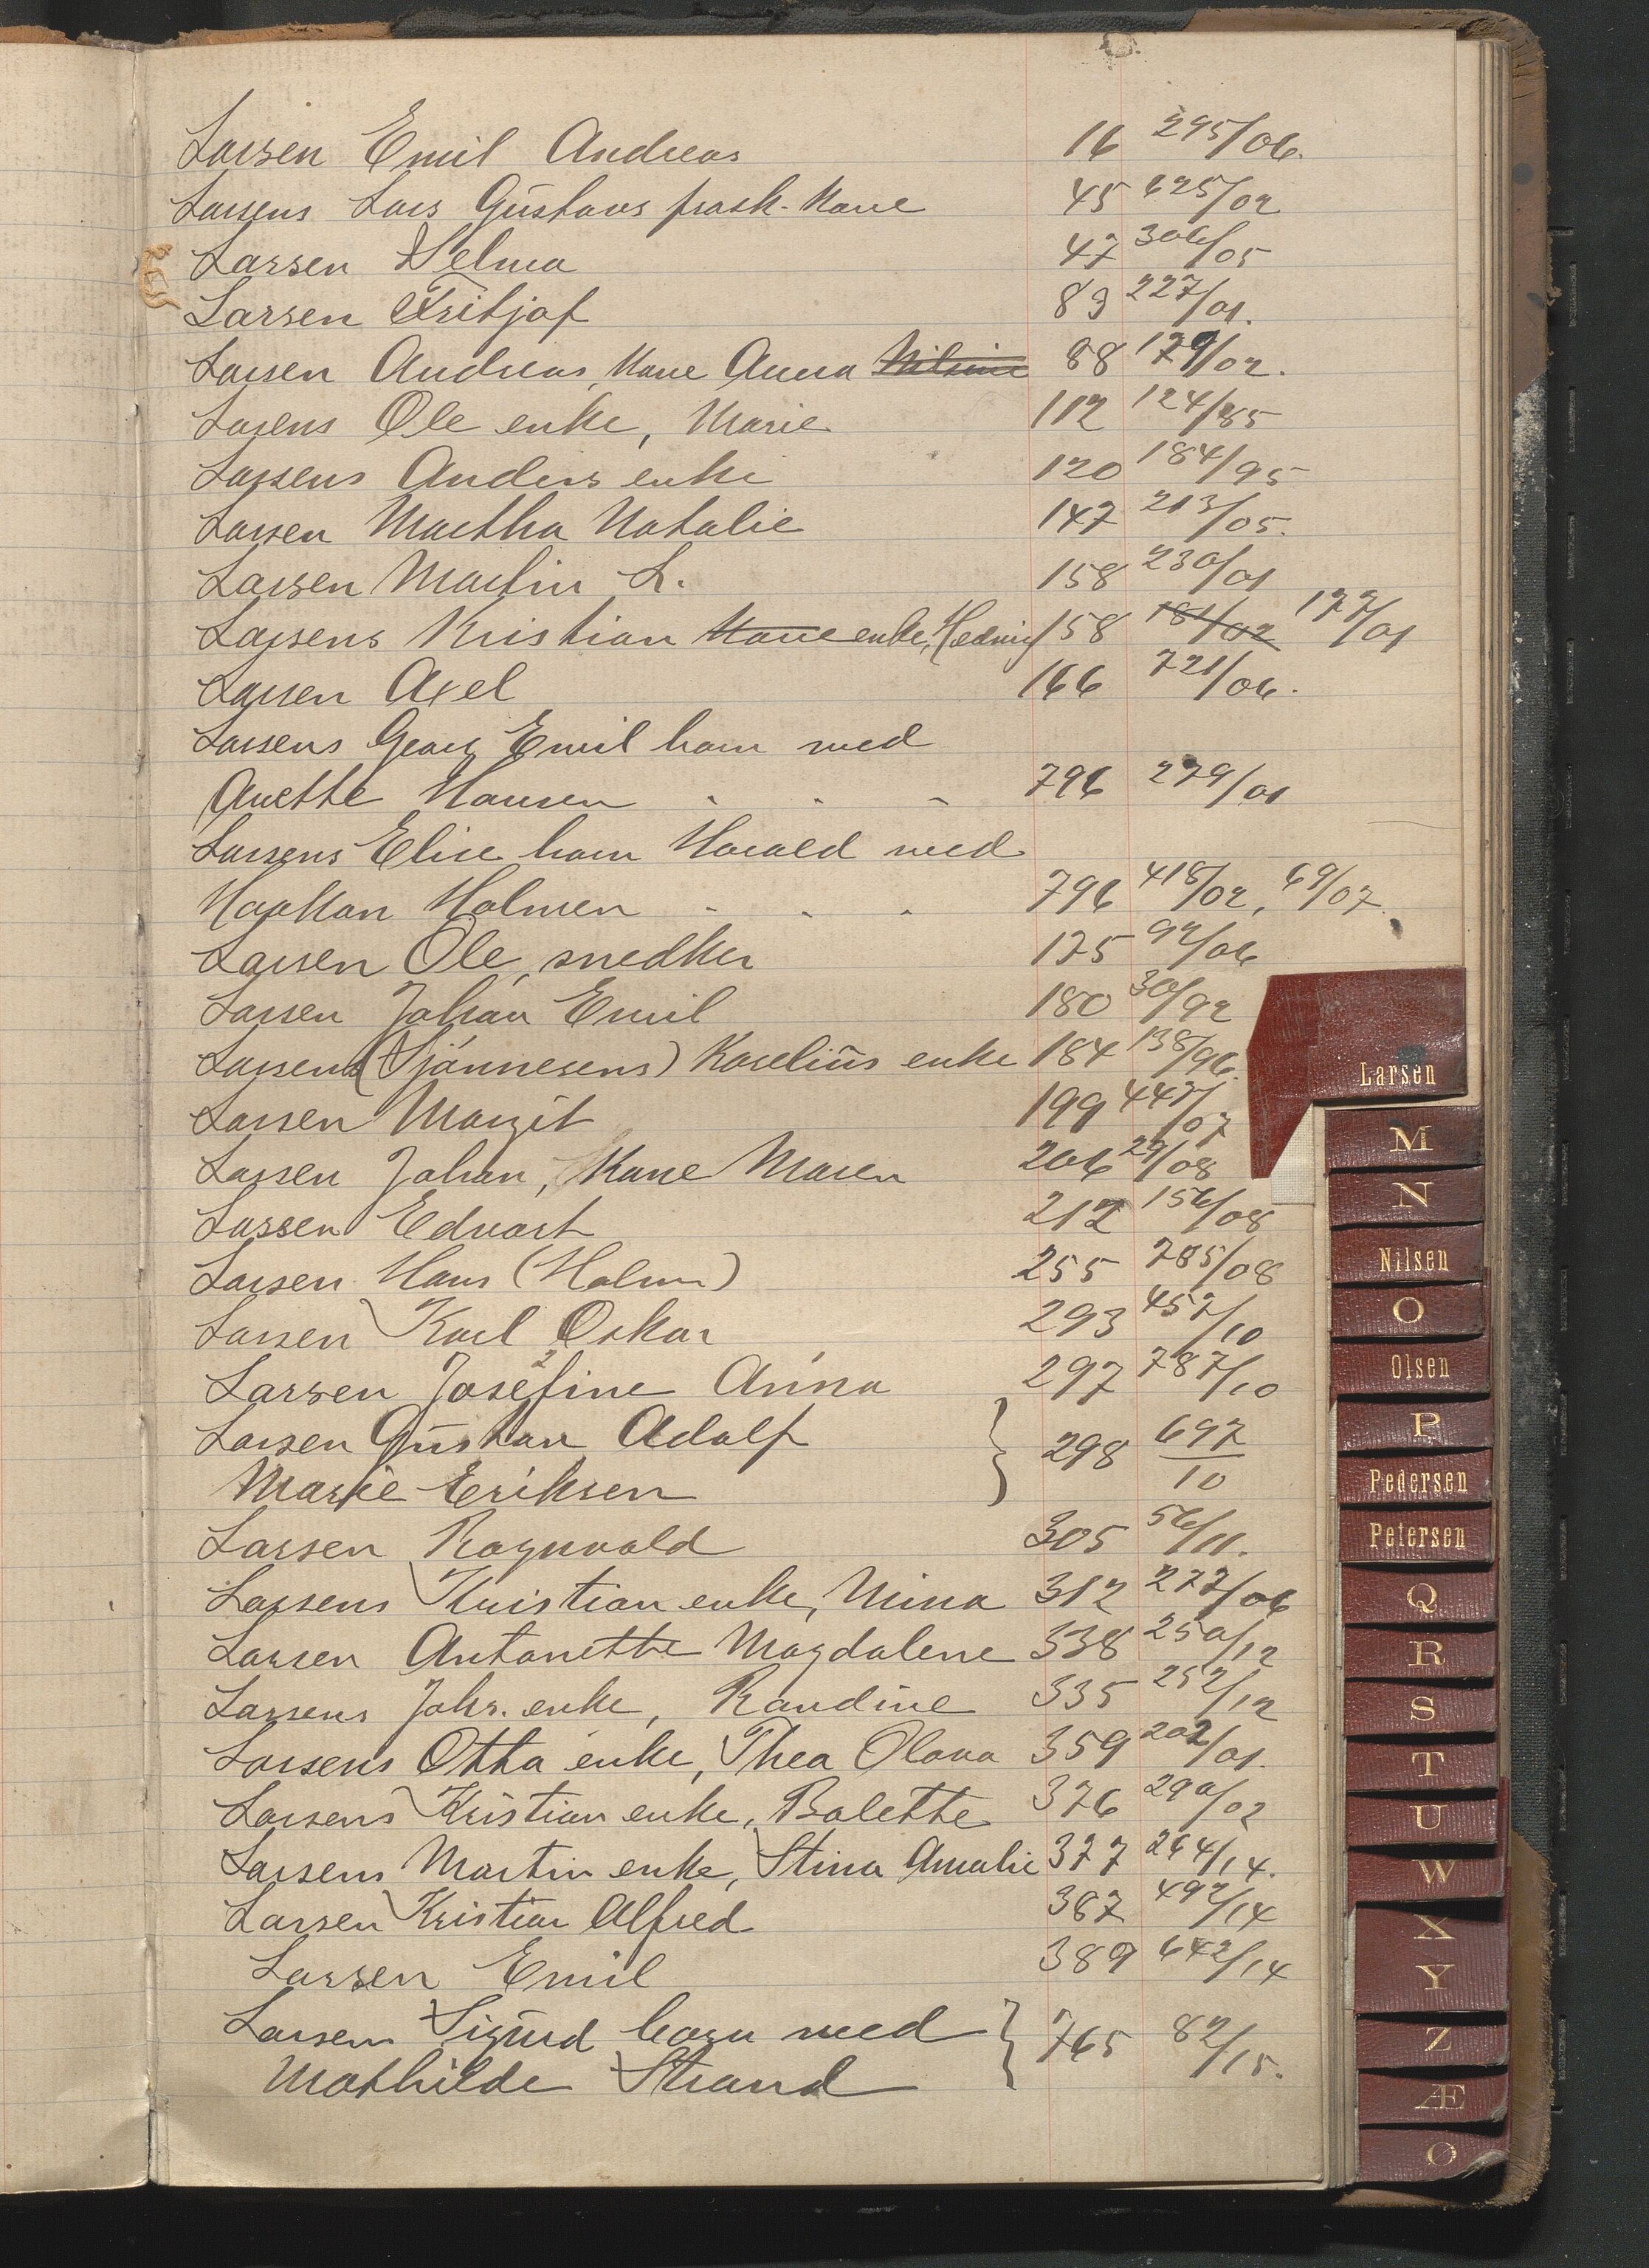 Larsen Emil Andreas 16 295/06.
Larsens Lars Gustavs frask. Kone 45 625/02
Larsen Selma 47 306/05
Larsen Fritjof 83 227/01.
Larsen Andreas, Kone Anna Nilsine 88 179/02.
Larsens Ole enke, Marie 112 124/85
Larsens Anders enke 120 184/95
Larsen Martha Natalie 147 213/05.
Larsen Martin L. 158 230/01
Larsens Kristian Kone enke, Hedvig 158 181/02 177/01
Larsen Axel 166 721/06.
Larsens Georg Emil barn med
Anette Hansen - - - 796 279/01
Larsens Elise barn Harald med
Haakon Holmsen - - - 796 418/02, 69/07.
Larsen Ole, snedker 175 92/06
Larsen Johan Emil 180 30/92
Larsens (Sjännesens) Karelius enke 184 138/96.
Larsen Margit 199 447/07
Larsen Johan, Kone Maren 206 29/08
Larsen Edvart 212 156/08
Larsen Hans (Holm) 255 785/08
Larsen Karl Oskar 293 457/10
Larsen Josefine Anna 297 787/10
Larsen Gustav Adolf
Marie Eriksen } 298 697/10
Larsen Ragnvald 305 56/11.
Larsens Kristian enke, Nina 312 277/06
Larsen Antonette Magdalene 338 250/12
Larsens Johs. enke, Randine 335 252/12
Larsens Otto enke, Thea Olava 359 202/01.
Larsens Kristian enke, Bolette 376 290/02
Larsens Martin enke, Stina Amalie 377 264/14.
Larsen Kristian Alfred 387 492/14
Larsen Emil 389 642/14
Larsen Sigurd barn med
Mathilde Strand } 765 82/15.
Larsen
M
N
Nilsen
O
Olsen
P
Pedersen
Petersen
Q
R
S
T
U
W
X
Y
Z
Æ
Ø